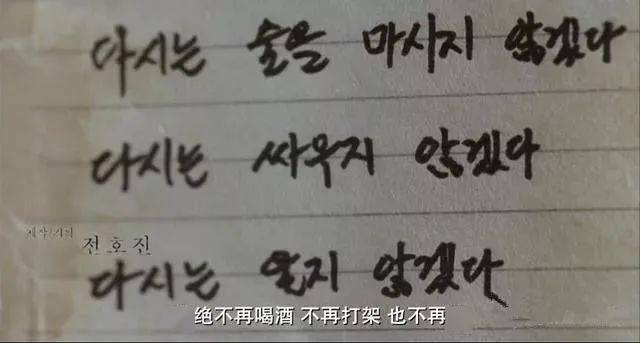 다시는 술을 마시지 않겠다
다시는 싸우지 않겠다
제작/기획
전호진
다시는 울지 않겠다
绝不再喝酒 不再打架 也不再